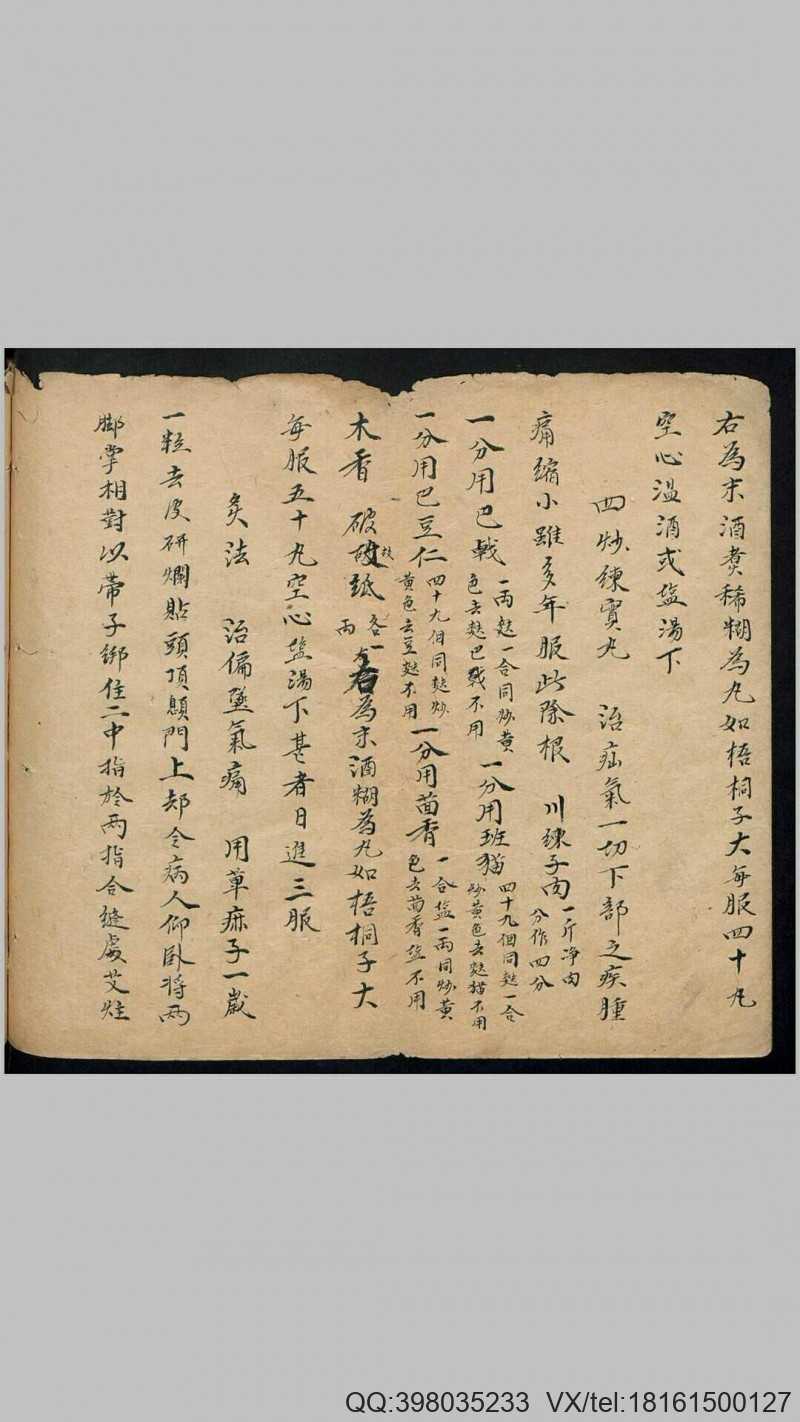 右為末酒煮稀糊為丸如梧桐子大每服四十丸
空心溫酒或盐湯下
四炒練實丸 治疝氣一切下部之疾腫
痛縮小雖多年服此除根 川練子肉一斤净肉分作四分
一分用巴戟一兩麩一合同炒黄色去麩巴戟不用一分用班猫四十九個同麩一合炒黄色去麩猫不用
一分用巴豆仁四十九個同麩炒黄色去豆麩不用一分用茴香一合盐一兩同炒黄色去茴香盐不用
木香 破故紙各一兩 右為末酒糊為丸如梧桐子大
每服五十丸空心盐湯下甚者日進三服
灸法 治偏墜氣痛 用萆麻子一歲
一粒去皮研爛貼頭頂顖門上却令病人仰卧将两
脚掌相對以帶子綁住二中指於两指合縫處艾炷
QQ:398035233 VX/tel:18161500127